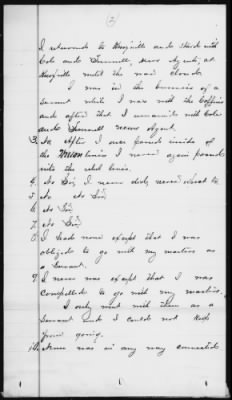 (3)
I returned to Knoxville and staid with
Cole and Trunnell, News Agents, at
Knoxville until the war closed.
I was in the business of a
servant while I was with the Coffins
and after that I remained with Cole
and Trunnell News Agent.
3. No. After I over passed inside of
the Union lines I never again passed
into the rebel lines.
4. No Sir, I never did, never went to
5. No No Sir,
6. No Sir,
7. No Sir,
8. I had none except that I was
obliged to go with my masters as
a servant.
9. I never was except that I was
compelled to go with my masters.
I only went with them as a
servant and I could not keep
from going.
10. I never was in any way connected